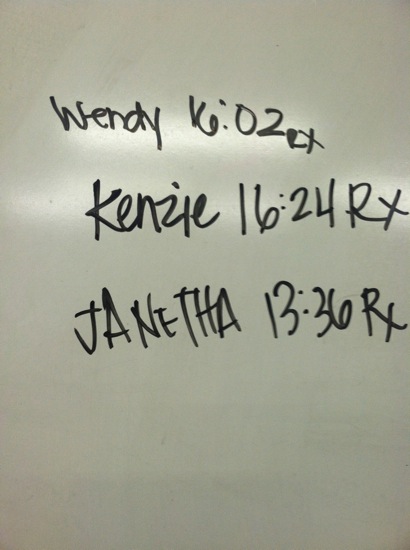 Wendy 16:02 RX
Kenzie 16:24 RX
JANETHA 13:36 Rx